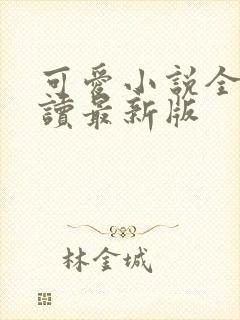 可愛小說全
讀最新版
林金城